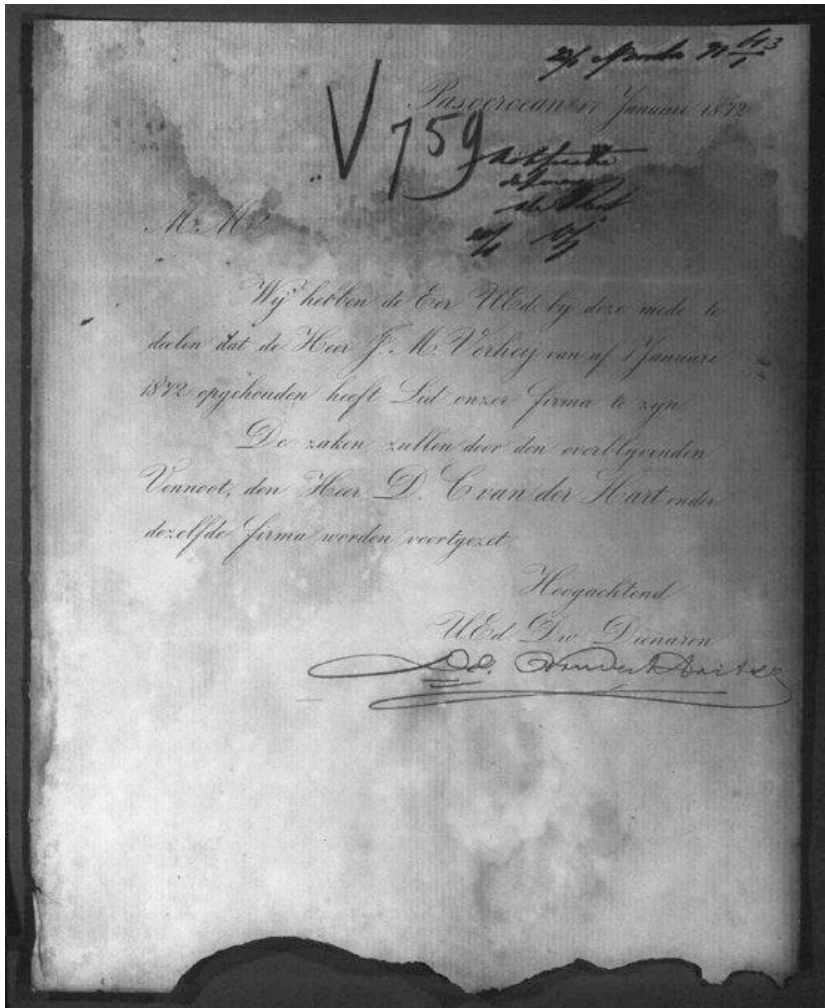 V 759
Pasoeroean 17 Januari 1872
M. M.
Wij hebben de Eer UEd. bij deze mede te
deelen dat de Heer J. M. Verheij van af 1 Januari
1872 opgehouden heeft Lid onzer firma te zijn.
De zaken zullen door den overblijvenden
Vennoot, den Heer D. C van der Hart onder
dezelfde firma worden voortgezet.
Hoogachtend
UEd. Dw. Dienaren